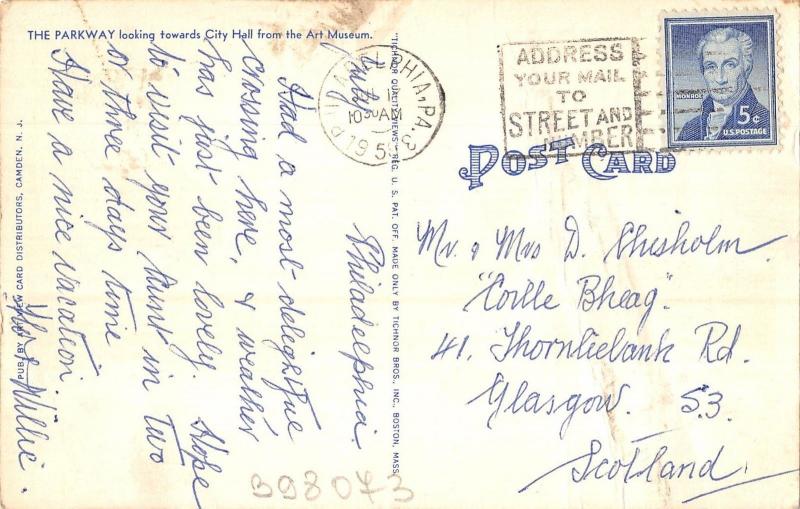 THE PARKWAY looking towards City Hall from the Art Museum.
Philadelphia.
July
Had a most delightful
crossing here, & weather
has just been lovely. Hope
to visit your Aunt in two
or three days time
Have a nice vacation.
Willie.
PUB. BY ART VIEW CARD DISTRIBUTORS, CAMDEN, N. J.
"TICHNOR QUALITY VIEWS," REG. U. S. PAT. OFF. MADE ONLY BY TICHNOR BROS., INC., BOSTON, MASS.
PHILADELPHIA, PA. 3
10 30 AM
195
ADDRESS
YOUR MAIL
TO
STREET AND
NUMBER
MONROE
5¢
U.S. POSTAGE
POST CARD
Mr. & Mrs D. Chisholm
"Coille Bheag".
41, Thornliebank Rd.
Glasgow. S.3.
Scotland.
398043